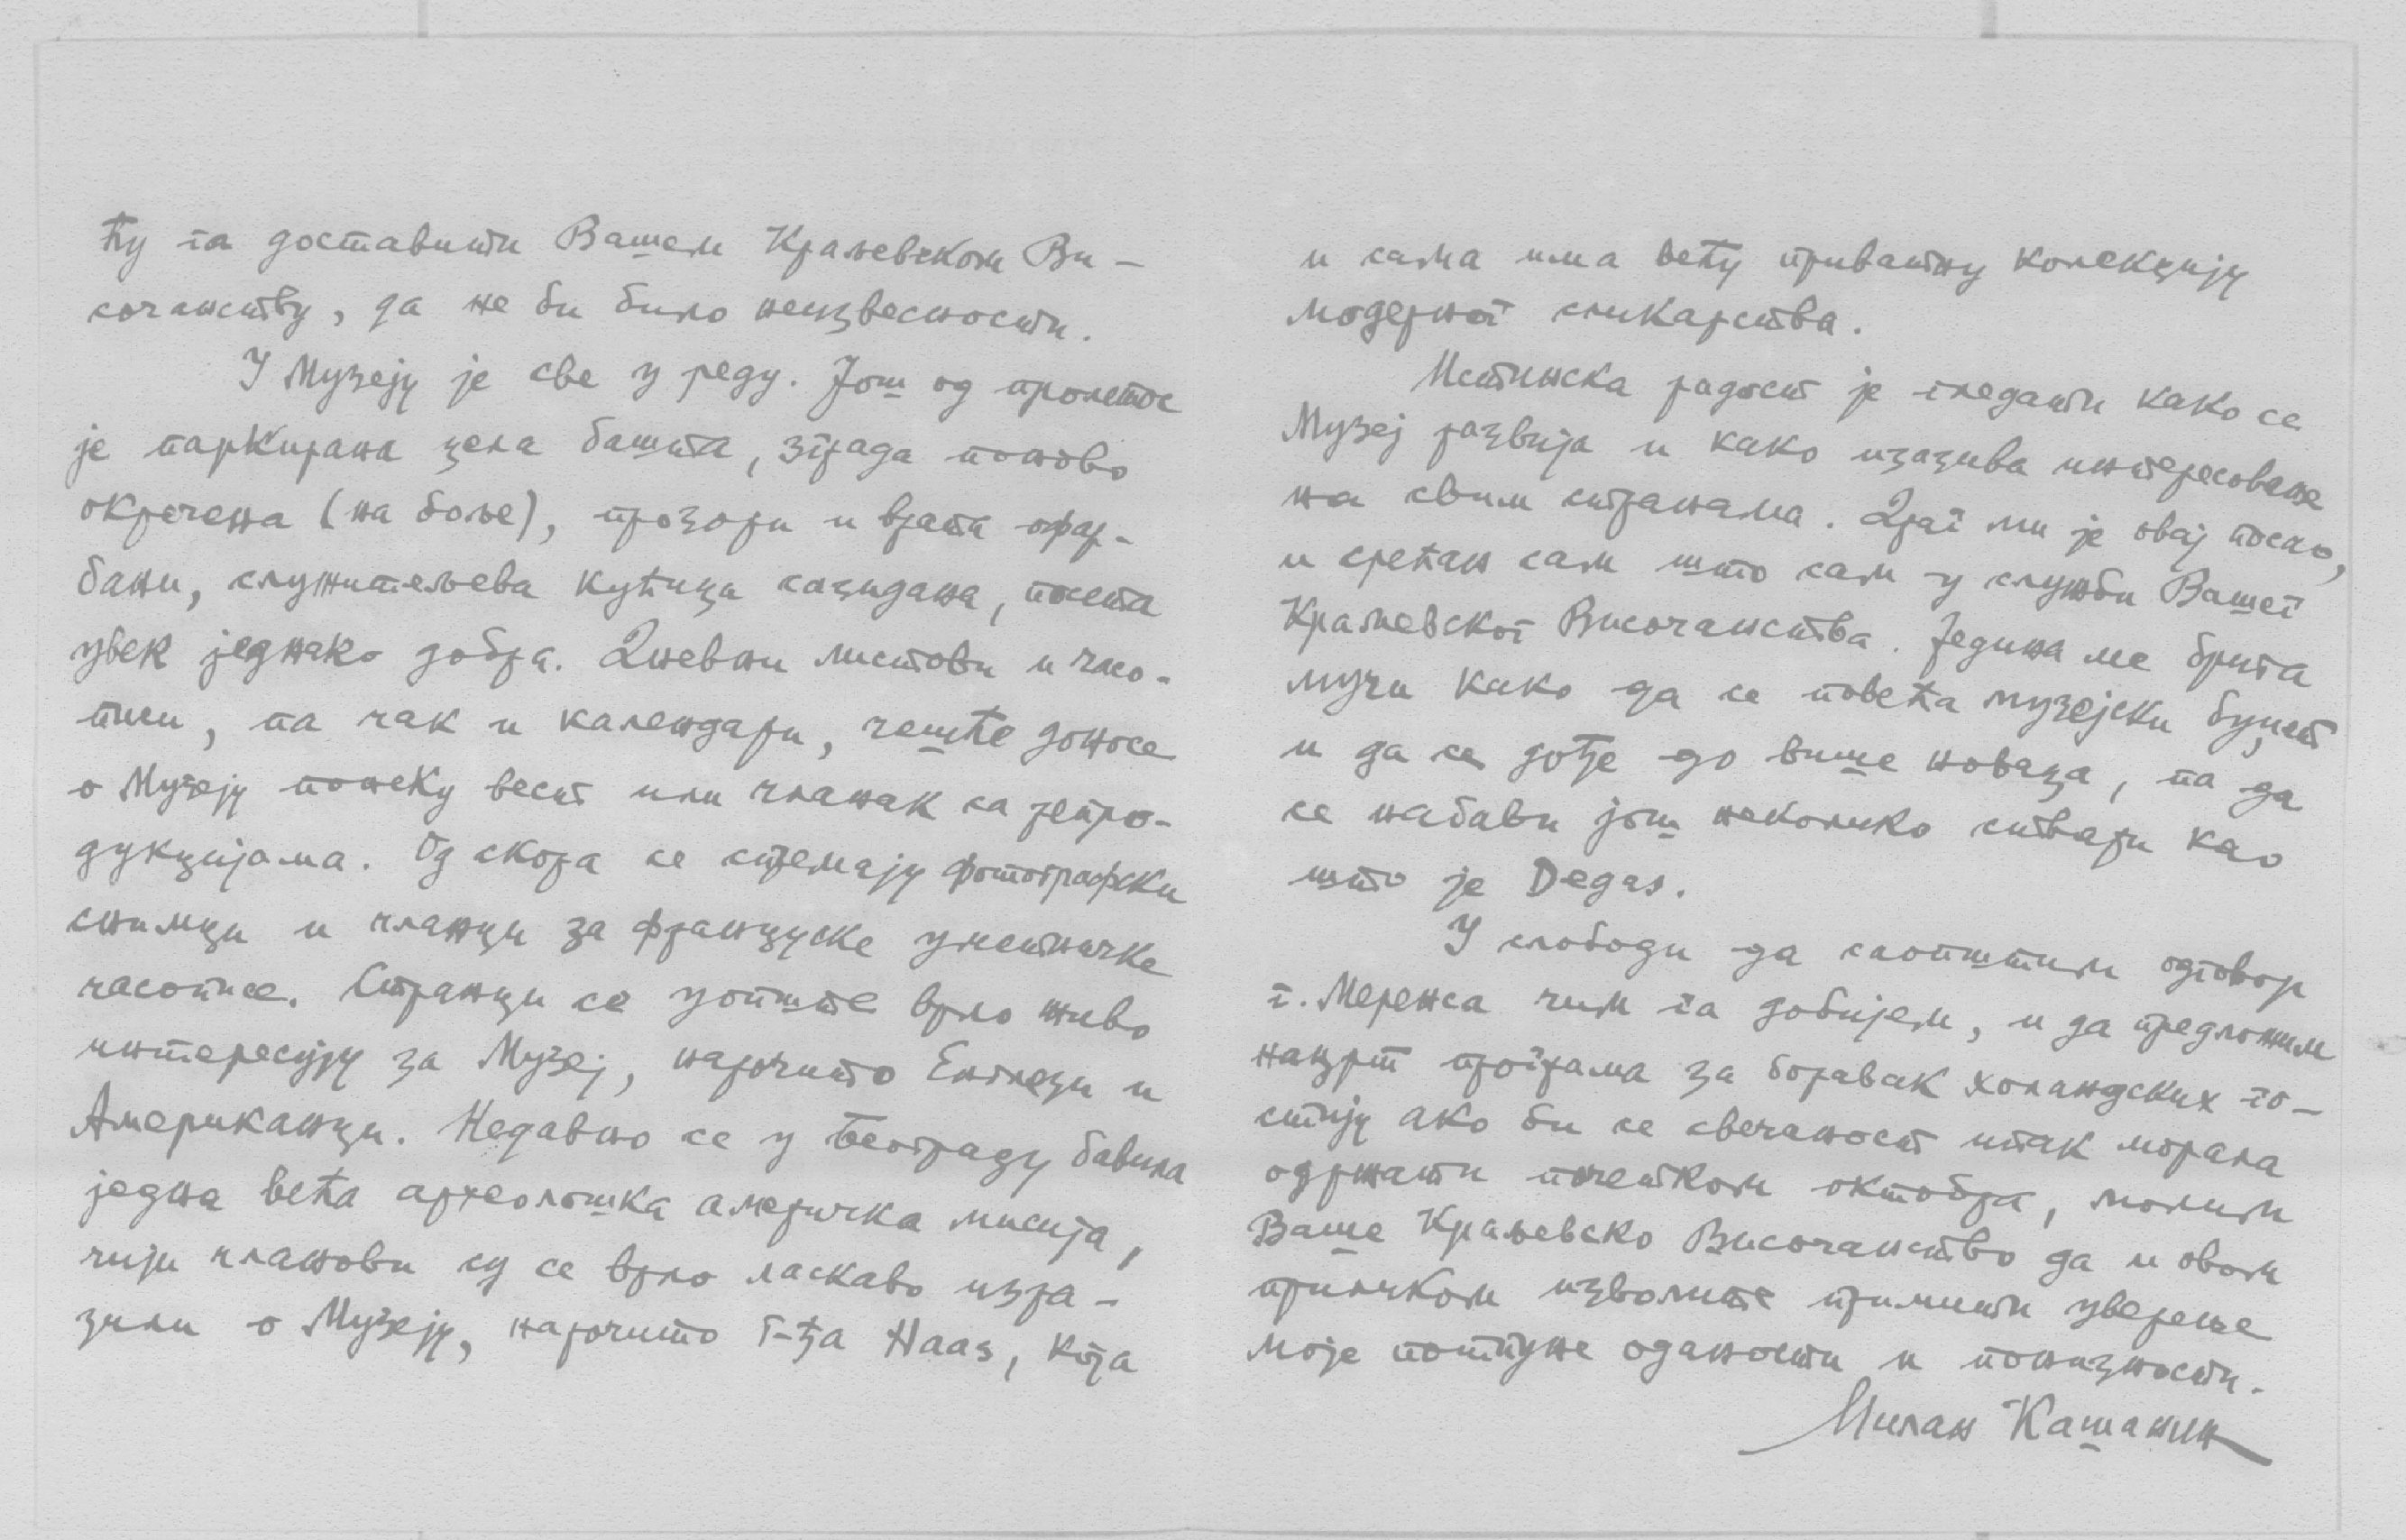 ћу га доставити Вашем Краљевском Ви-
сочанству, да не би било неизвесности.
У Музеју је све у реду. Још од пролетос
је паркирана цела башта, зграда поново
окречена (на боље), прозори и врата офар-
бани, служитељева кућица сазидана, посета
увек једнако добра. Дневни листови и часо-
писи, па чак и календари, чешће доносе
о Музеју понеку вест или чланак са репро-
дукцијама. Од скора се спремају фотографски
снимци и чланци за француске уметничке
часописе. Странци се уопште врло живо
интересују за Музеј, нарочито Енглези и
Американци. Недавно се у Београду бавила
једна већа археолошка америчка мисија,
чији чланови су се врло ласкаво изра-
зили о Музеју, нарочито г-ђа Haas, која
и сама има већу приватну колекцију
модерног сликарства.
Истинска радост је гледати како се
Музеј развија и како изазива интересовање
на свим странама. Драг ми је овај посао,
и срећан сам што сам у служби Вашег
Краљевског Височанства. Једина ме брига
мучи како да се повећа музејски буџет
и да се дође до више новаца, па да
се набави још неколико ствари као
што је Degas.
У слободи да саопштим одговор
г. Меренса чим га добијем, и да предложим
нацрт програма за боравак холандских го-
стију ако би се свечаност ипак морала
одржати почетком октобра, молим
Ваше Краљевско Височанство да и овом
приликом изволите примити уверење
моје потпуне оданости и понизности.
Милан Кашанин